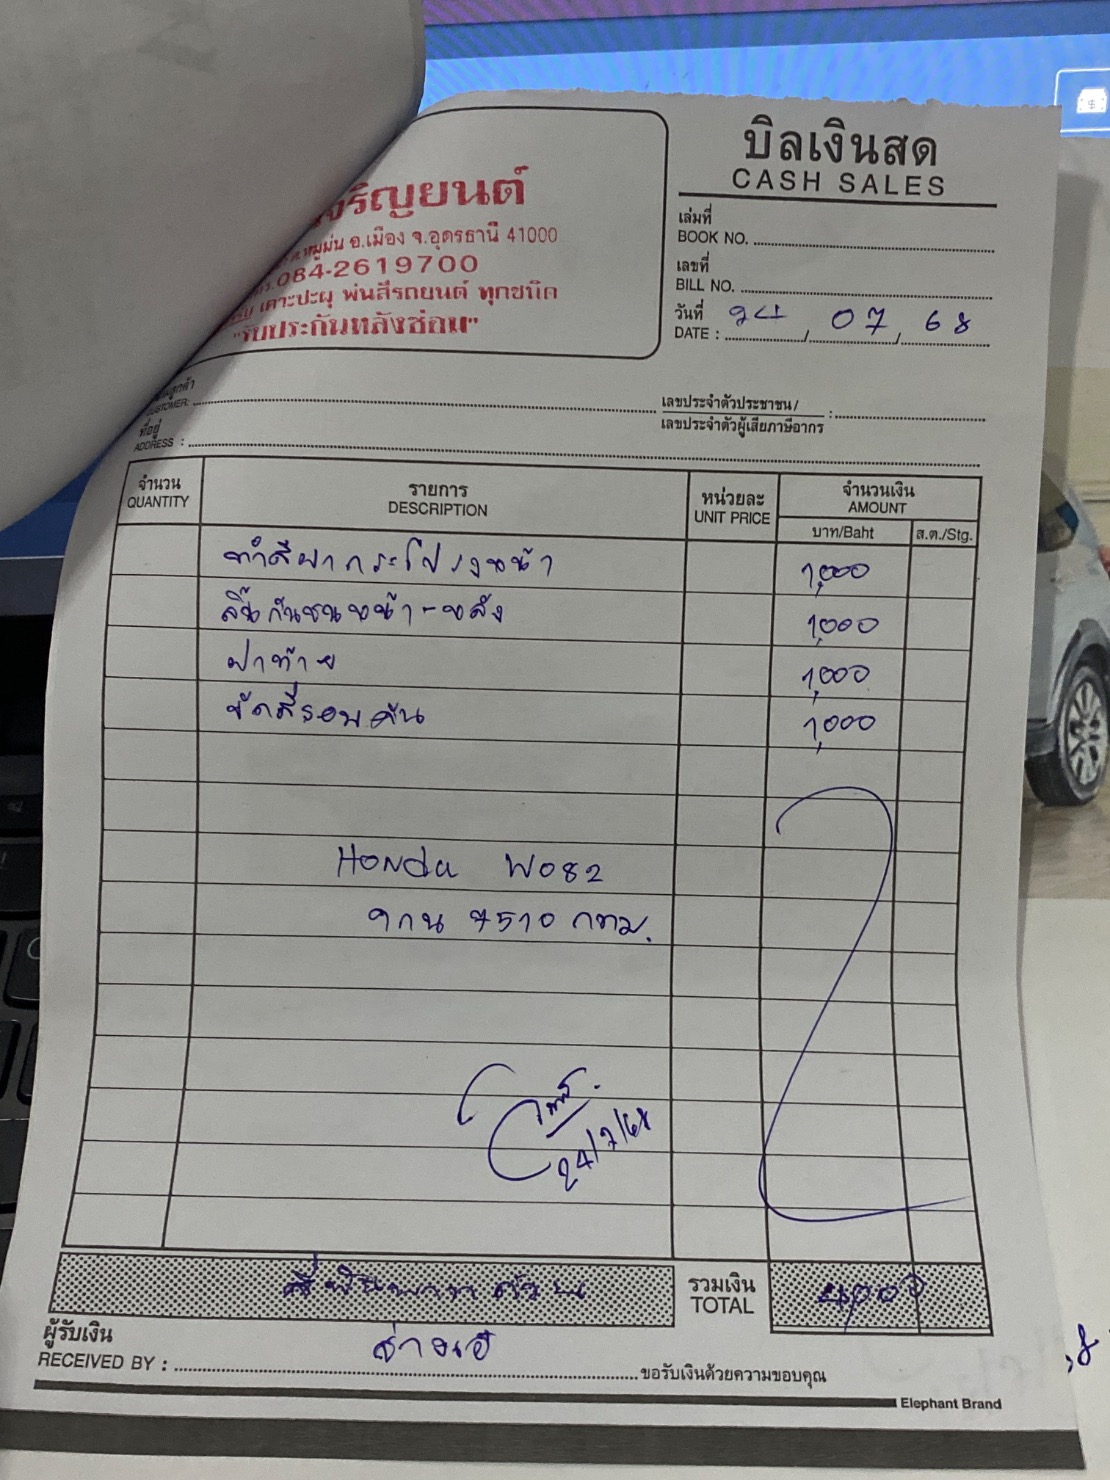 บิลเงินสด
CASH SALES
จริญยนต์
หมูม่น อ.เมือง จ.อุดรธานี 41000
084-2619700
เคาะปะผุ พ่นสีรถยนต์ ทุกชนิด
"รับประกันหลังซ่อม"
เล่มที่
BOOK NO.
เลขที่
BILL NO.
วันที่ 24 07 68
DATE : / /
ลูกค้า
CUSTOMER:
เลขประจำตัวประชาชน/
เลขประจำตัวผู้เสียภาษีอากร :
ที่อยู่
ADDRESS :
จำนวน รายการ หน่วยละ จำนวนเงิน
QUANTITY DESCRIPTION UNIT PRICE AMOUNT
บาท/Baht ส.ต./Stg.
ทำสีฝากระโปรงหน้า 1,000
ลิ้นกันชนหน้า-หลัง 1,000
ฝาท้าย 1,000
ขัดสีรอบคัน 1,000
HONda W082
7510 กทม.
24/7/68
สี่พันบาทถ้วน รวมเงิน 4,000
TOTAL
ผู้รับเงิน
RECEIVED BY : ช่างเอ๋ ขอรับเงินด้วยความขอบคุณ
Elephant Brand